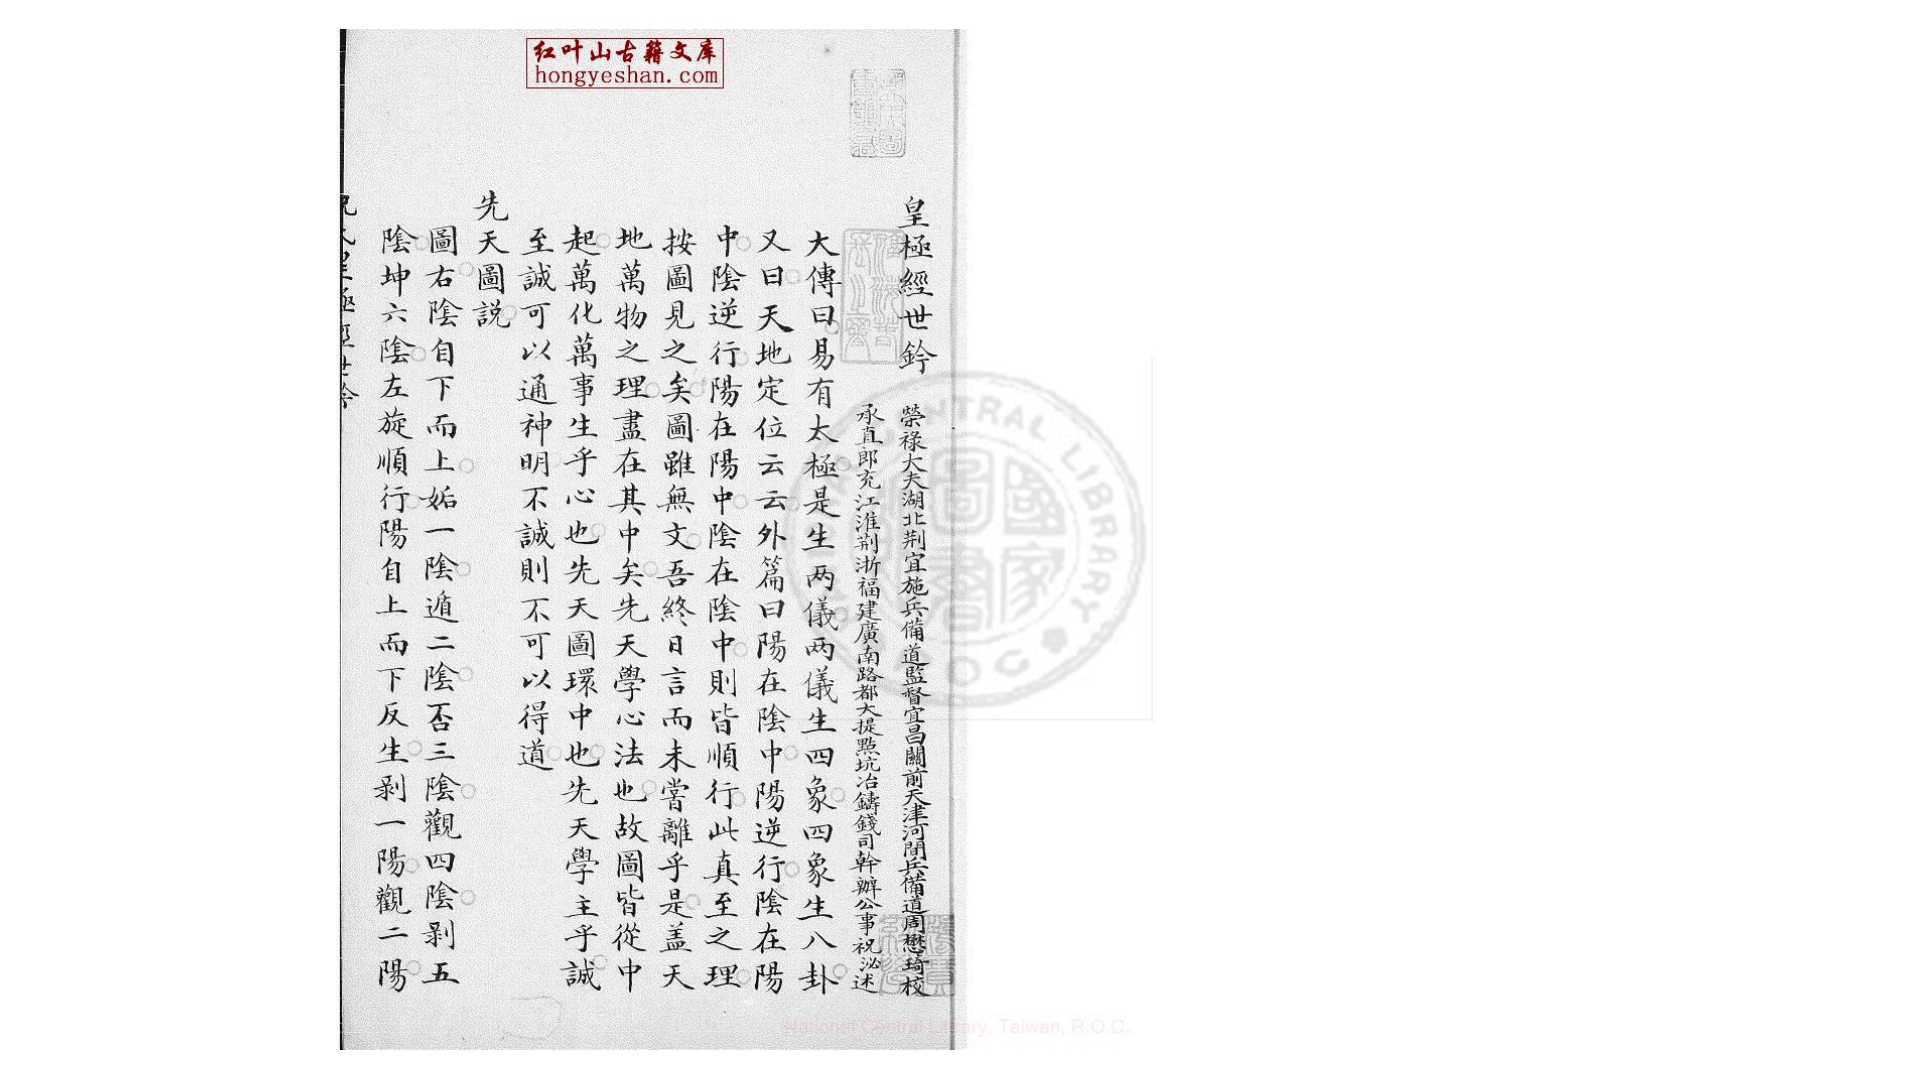 红叶山古籍文库
hongyeshan.com
皇極經世鈐
榮祿大夫湖北荆宜施兵備道監督宜昌關前天津河間兵備道周懋琦校
承直郎充江淮荆浙福建廣南路都大提點坑冶鑄錢司幹辦公事祝泌述
大傳曰易有太極是生两儀两儀生四象四象生八卦
又曰天地定位云云外篇曰陽在陰中陽逆行陰在陽
中陰逆行陽在陽中陰在陰中則皆順行此真至之理
按圖見之矣圖雖無文吾終日言而未嘗離乎是盖天
地萬物之理盡在其中矣先天學心法也故圖皆從中
起萬化萬事生乎心也先天圖環中也先天學主乎誠
至誠可以通神明不誠則不可以得道
先天圖説
圖右陰自下而上姤一陰遁二陰否三陰觀四陰剥五
陰坤六陰左旋順行陽自上而下反生剥一陽觀二陽
CENTRAL LIBRARY
R.O.C
國家圖書
National Central Library, Taiwan, R.O.C.